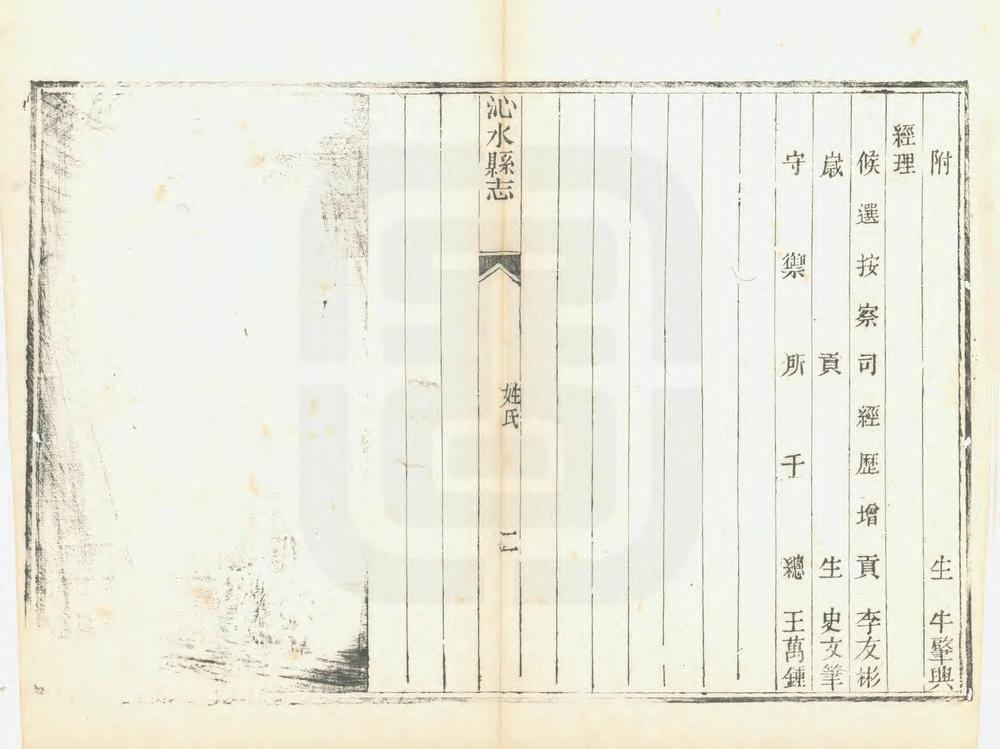 附生牛肇興
經理
候選按察司經歷增貢李友彬
歲貢生史文筆
守禦所千總王萬鍾
沁水縣志
姓氏
二